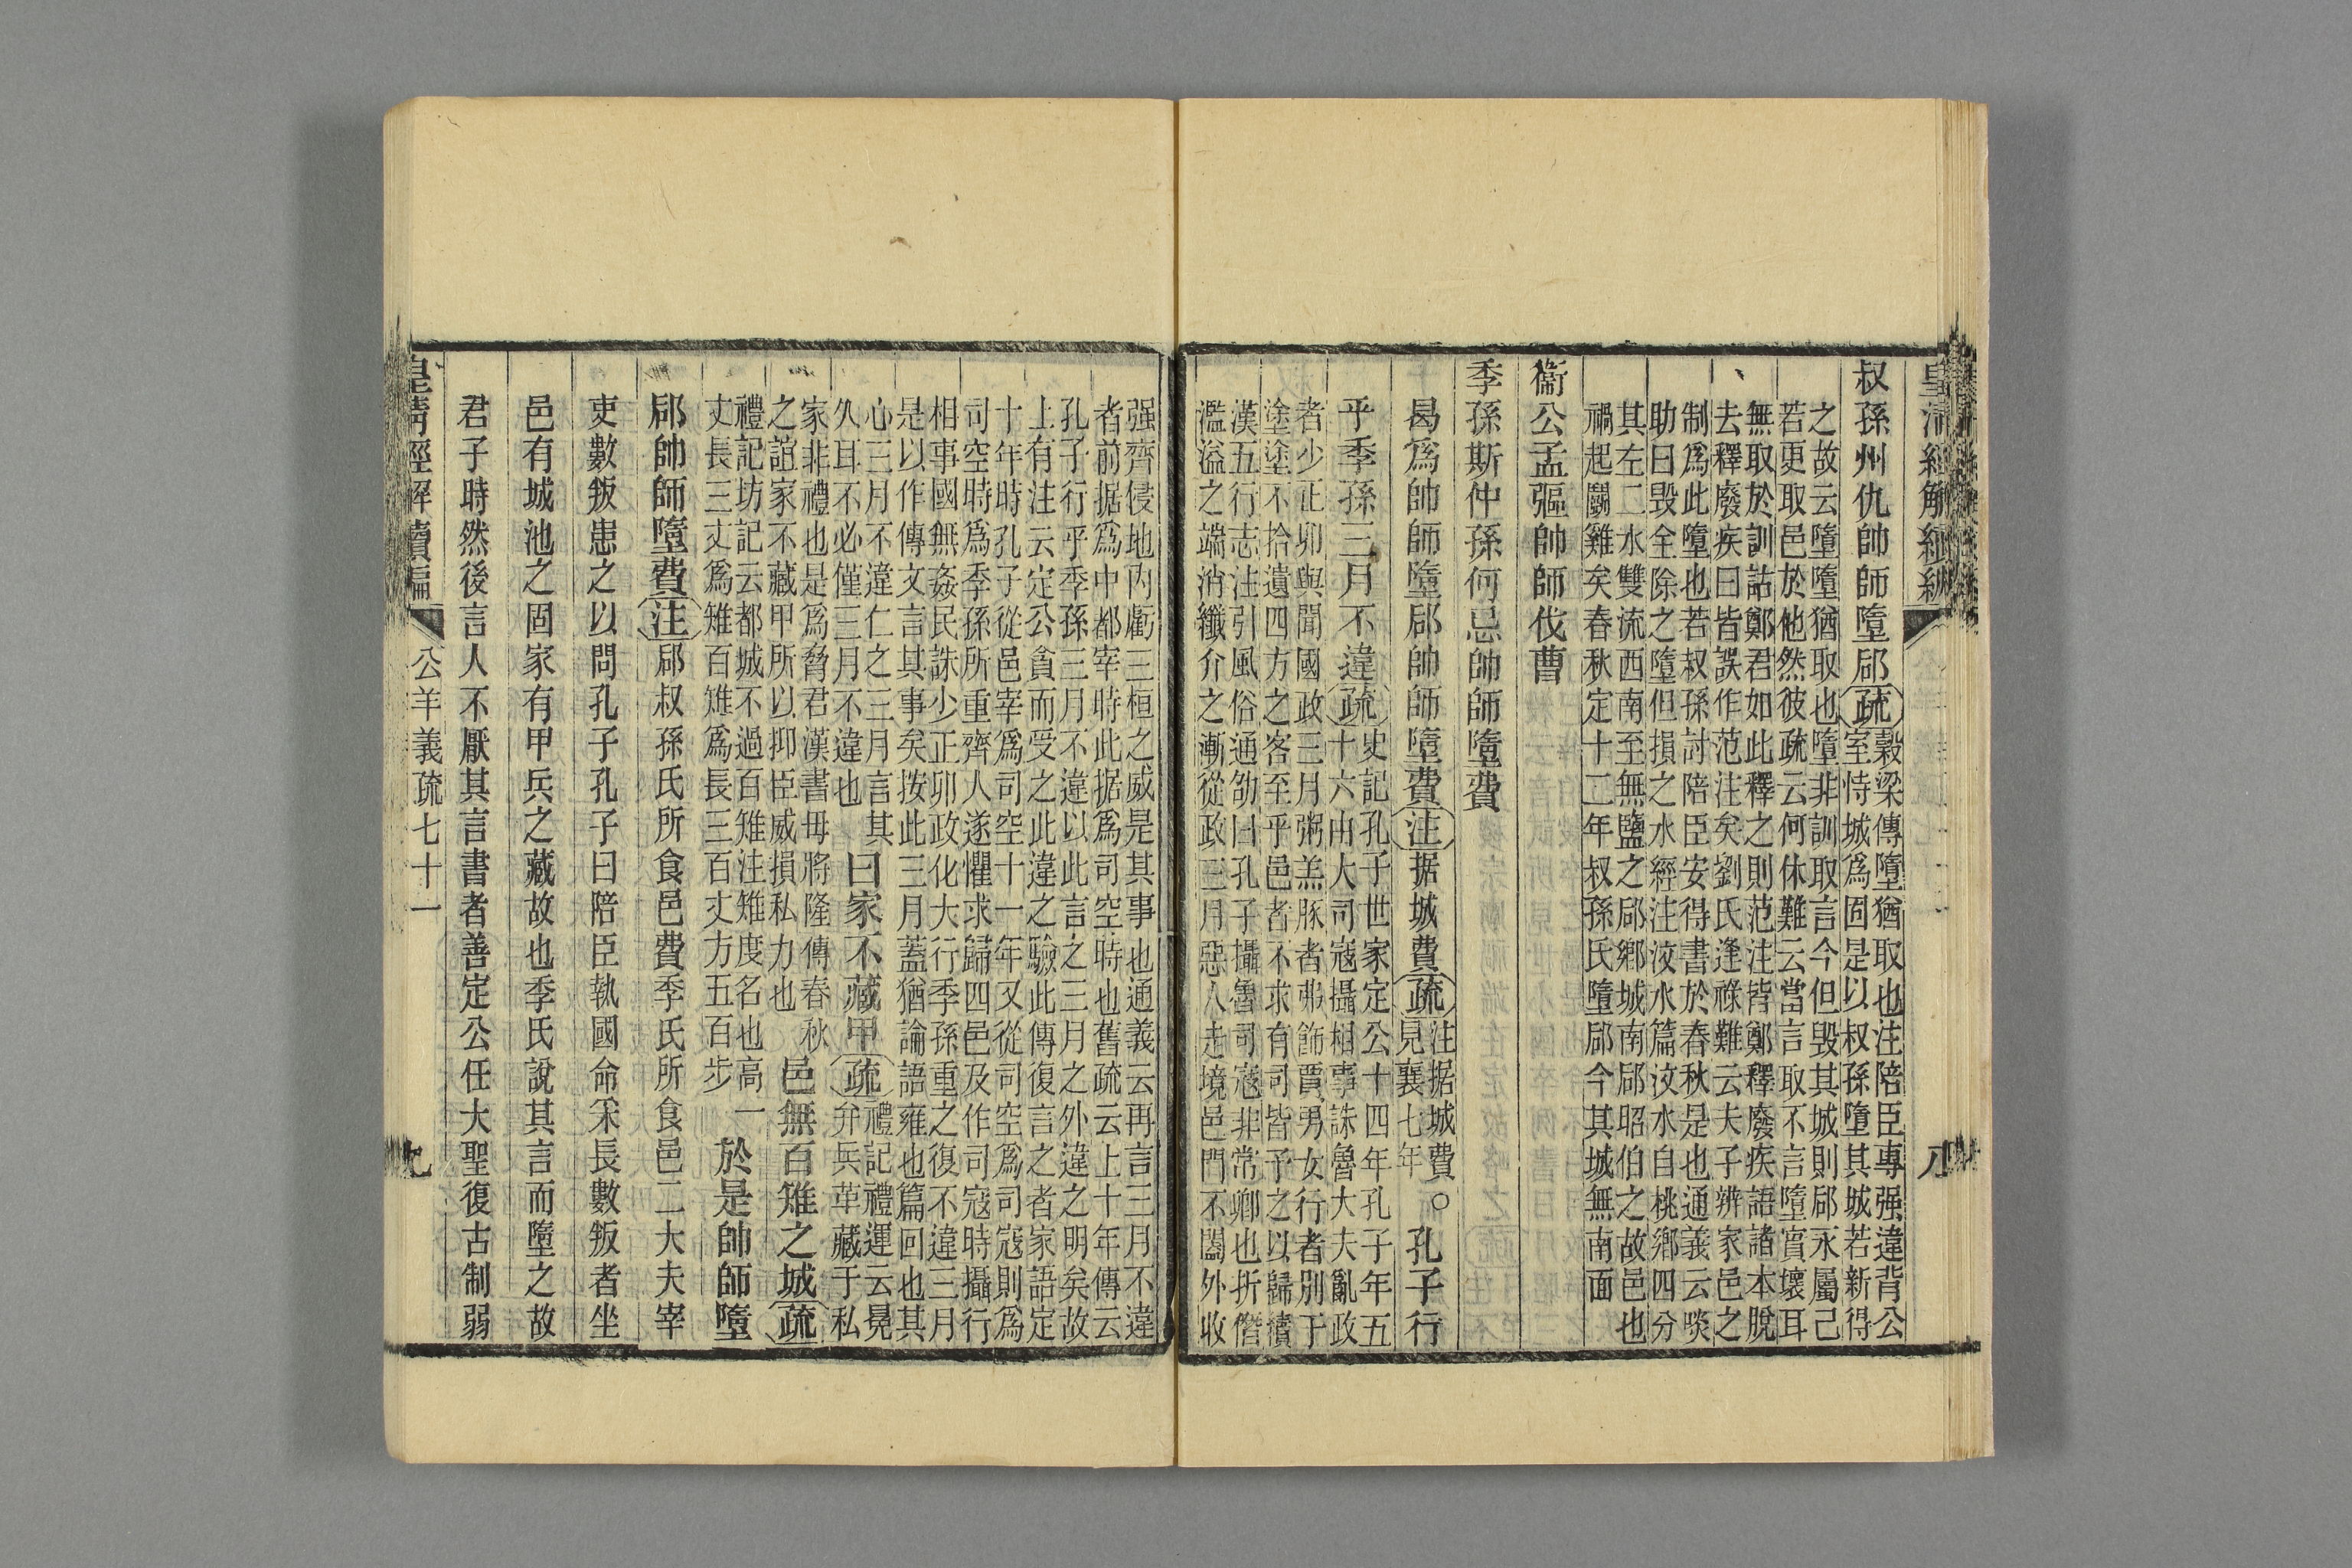 皇清經解續編
八
叔孫州仇帥師墮郈疏穀梁傳墮猶取也注陪臣專强違背公
室恃城爲固是以叔孫墮其城若新得
之故云墮墮猶取也墮非訓取言今但毀其城則郈永屬己
若更取邑於他然彼疏云何休難云當言取不言墮實壞耳
無取於訓詁鄭君如此釋之則范注皆鄭釋廢疾語諸本脫
去釋廢疾曰皆誤作范注矣劉氏逢祿難云夫子辨家邑之
制爲此墮也若叔孫討陪臣安得書於春秋是也通義云啖
助曰毀全除之墮但損之水經注汶水篇汶水自桃鄉四分
其左二水雙流西南至無鹽之郈鄉城南郈昭伯之故邑也
禍起鬭雞矣春秋定十二年叔孫氏墮郈今其城無南面
衞公孟彄帥師伐曹
季孫斯仲孫何忌帥師墮費
曷爲帥師墮郈帥師墮費注据城費疏注据城費○
見襄七年
孔子行
乎季孫三月不違疏史記孔子世家定公十四年孔子年五
十六由大司寇攝相事誅魯大夫亂政
者少正卯與聞國政三月粥羔豚者弗飾賈男女行者別于
塗塗不拾遺四方之客至乎邑者不求有司皆予之以歸續
漢五行志注引風俗通劭曰孔子攝魯司寇非常卿也折僭
濫溢之端消纖介之漸從政三月惡人走境邑門不闔外收
强齊侵地內虧三桓之威是其事也通義云再言三月不違
者前据爲中都宰時此据爲司空時也舊疏云上十年傳云
孔子行乎季孫三月不違以此言之三月之外違之明矣故
上有注云定公貪而受之此違之驗此傳復言之者家語定
十年時孔子從邑宰爲司空十一年又從司空爲司寇則爲
司空時爲季孫所重齊人遂懼求歸四邑及作司寇時攝行
相事國無姦民誅少正卯政化大行季孫重之復不違三月
是以作傳文言其事矣按此三月蓋猶論語雍也篇回也其
心三月不違仁之三月言其
久耳不必僅三月不違也
曰家不藏甲疏禮記禮運云冕
弁兵革藏于私
家非禮也是爲脅君漢書毋將隆傳春秋
之誼家不藏甲所以抑臣威損私力也
邑無百雉之城疏
禮記坊記云都城不過百雉注雉度名也高一
丈長三丈爲雉百雉爲長三百丈方五百步
於是帥師墮
郈帥師墮費注郈叔孫氏所食邑費季氏所食邑二大夫宰
吏數叛患之以問孔子孔子曰陪臣執國命采長數叛者坐
邑有城池之固家有甲兵之藏故也季氏說其言而墮之故
君子時然後言人不厭其言書者善定公任大聖復古制弱
皇清經解續編
公羊義疏七十一
九